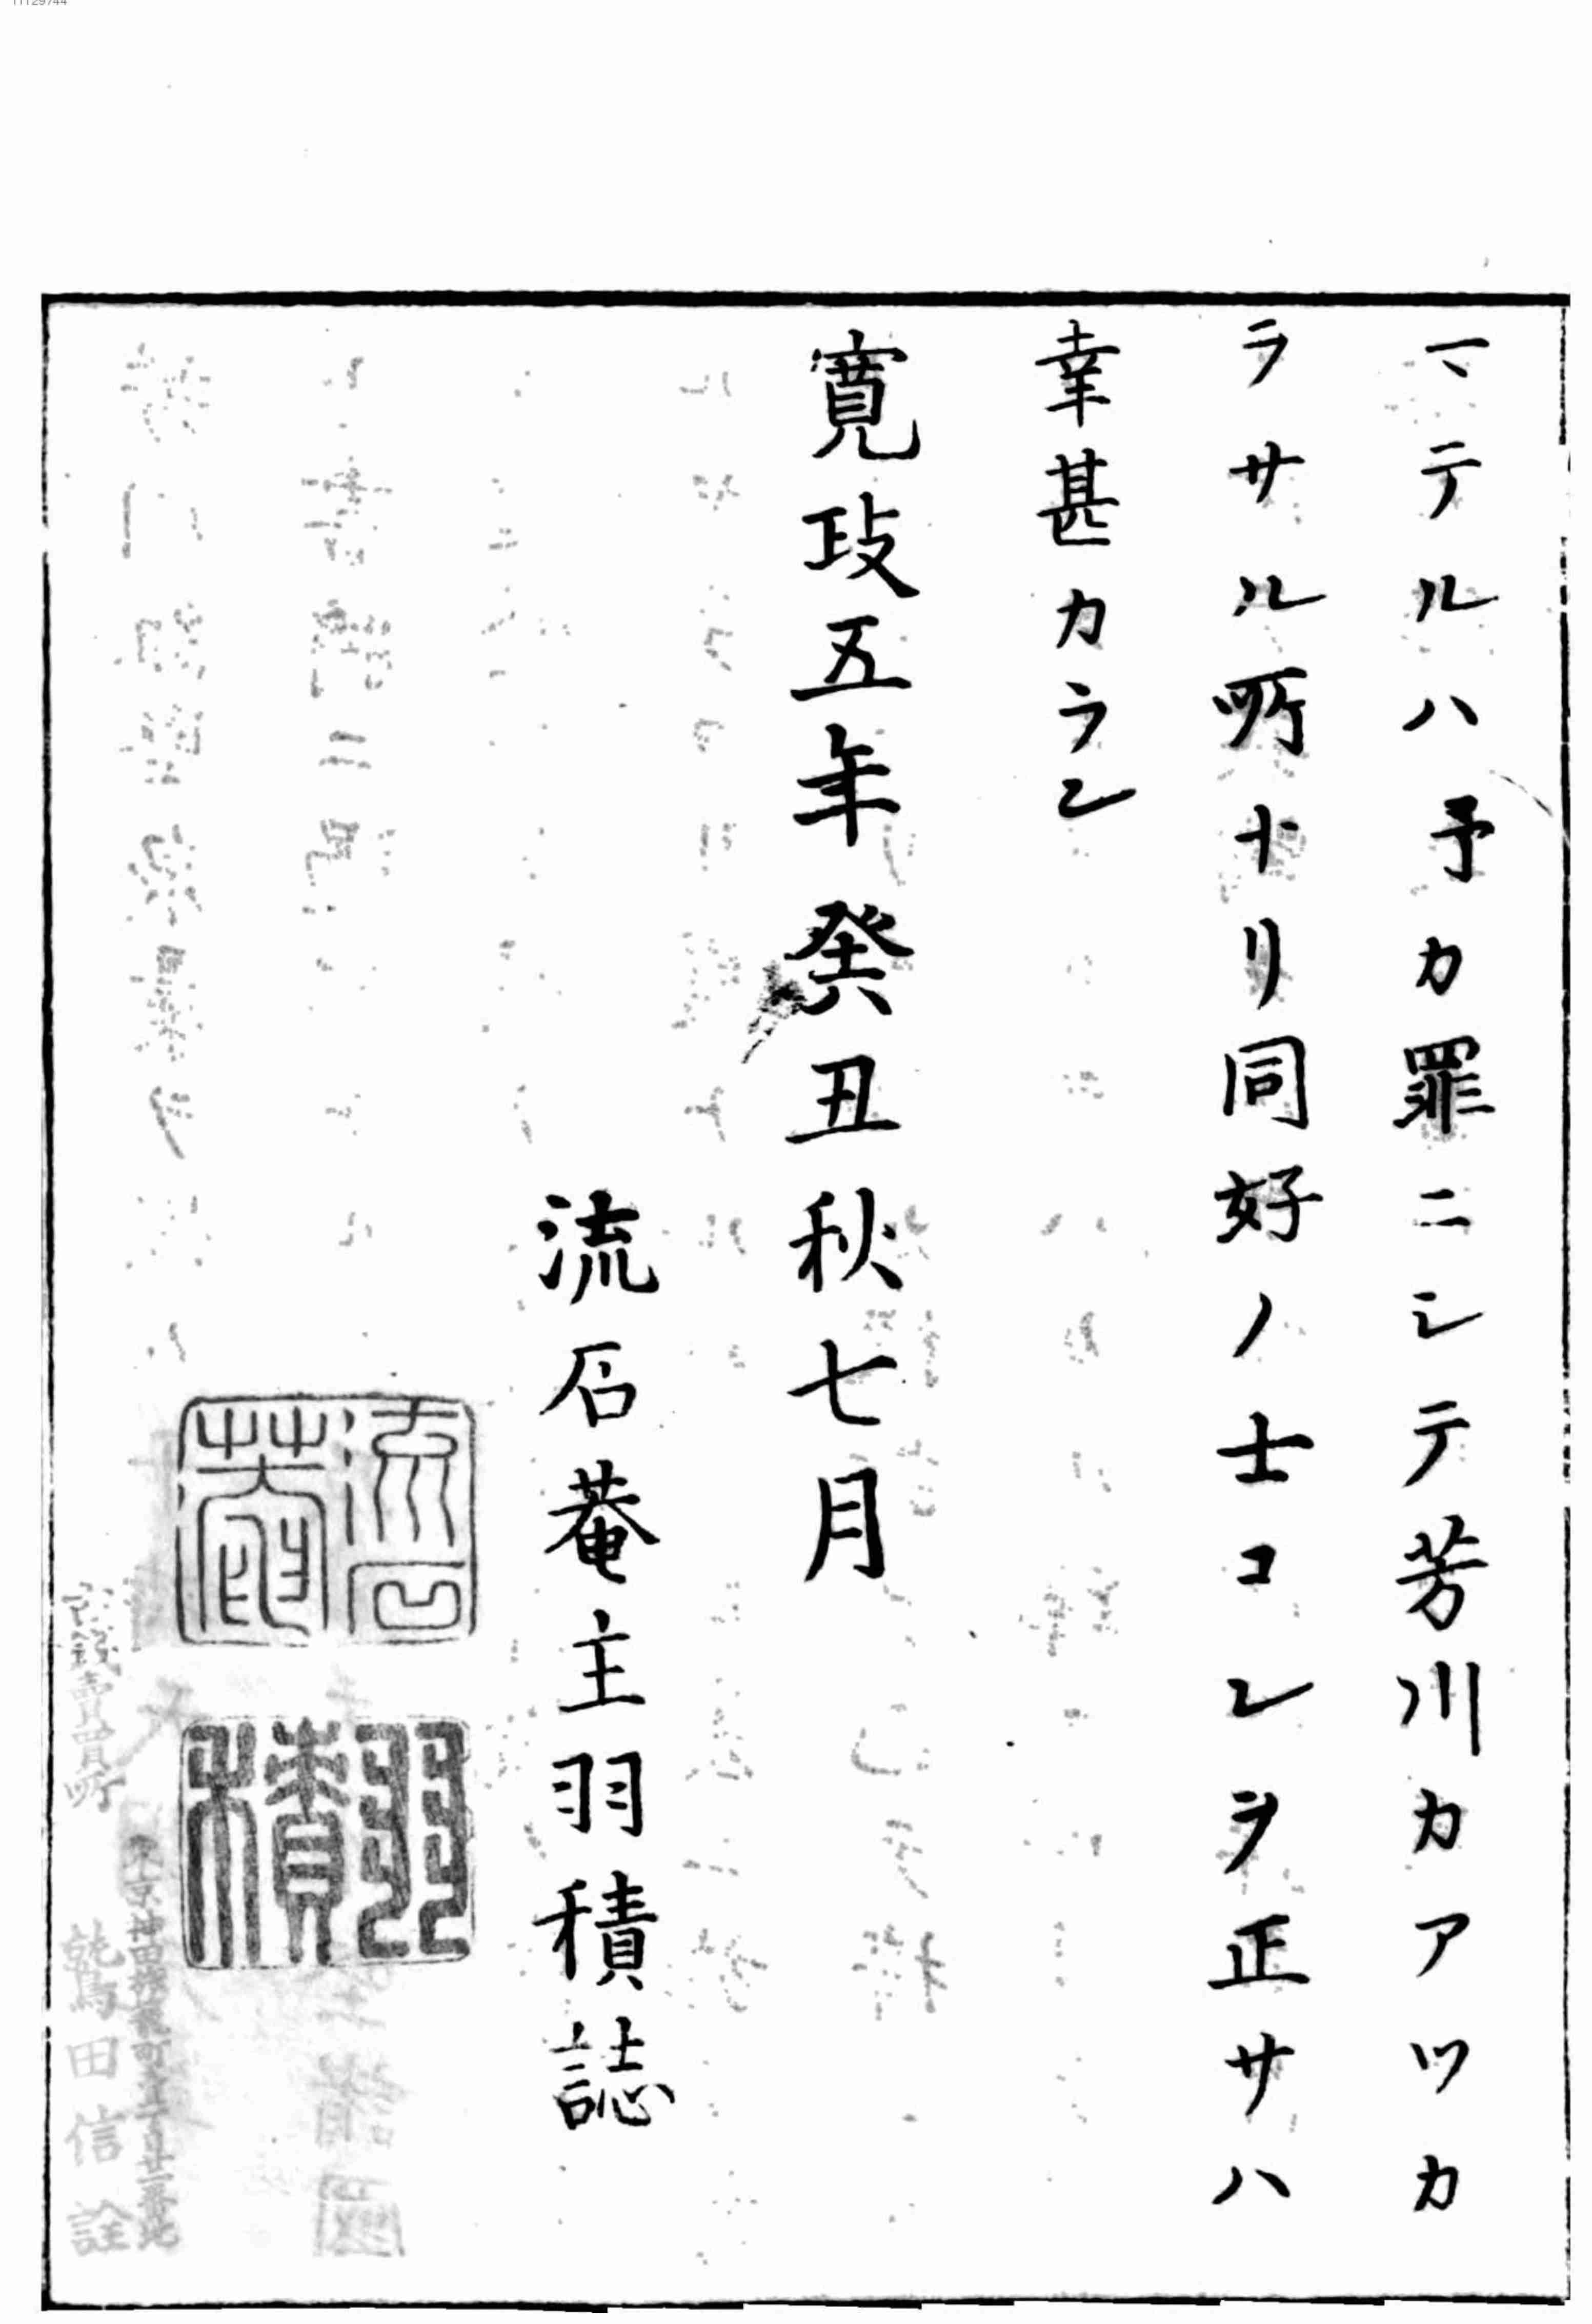 マテルハ予カ罪ニシテ芳川カアツカ
ラサル所ナリ同好ノ士コレヲ正サハ
幸甚カラン
寛政五年癸丑秋七月
流石菴主羽積誌
流石
菴
羽
積
賣買所
田信詮
11129744